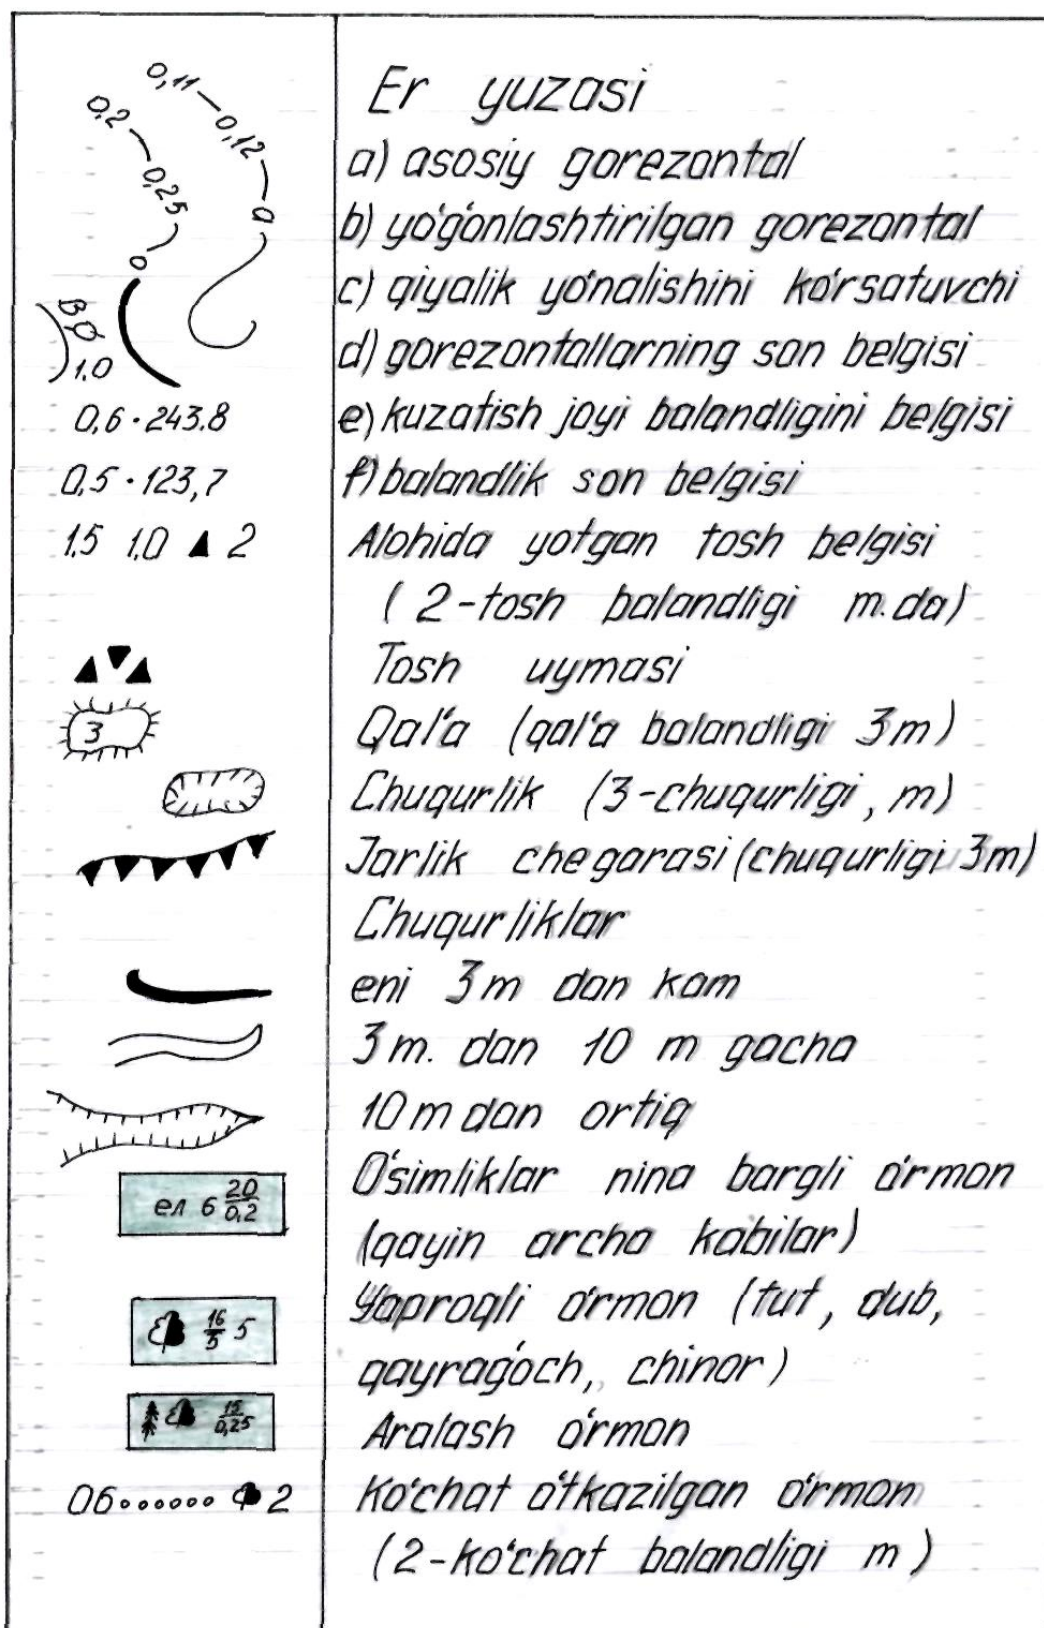 0,11 0,12 a
0,2 0,25 0
ВФ
1.0
Er yuzasi
a) asosiy gorezontal
b) yo'g'onlashtirilgan gorezontal
c) qiyalik yo'nalishini ko'rsatuvchi
d) gorezontallarning son belgisi
0,6 · 243.8 e) kuzatish joyi balandligini belgisi
0,5 · 123,7 f) balandlik son belgisi
1.5 1.0 ▲ 2 Alohida yotgan tosh belgisi
(2-tosh balandligi m.da)
Tosh uymasi
3 Qal'a (qal'a balandligi 3m)
Chuqurlik (3-chuqurligi, m)
Jarlik chegarasi (chuqurligi 3m)
Chuqurliklar
eni 3m dan kam
3m. dan 10 m gacha
10m dan ortiq
ел 6 20/0,2 O'simliklar nina bargli o'rmon
(qayin archa kabilar)
16/5 5 Yaproqli o'rmon (tut, dub,
qayrag'och, chinor)
15/0,25 Aralash o'rmon
06...... 2 Ko'chat o'tkazilgan o'rmon
(2-ko'chat balandligi m)